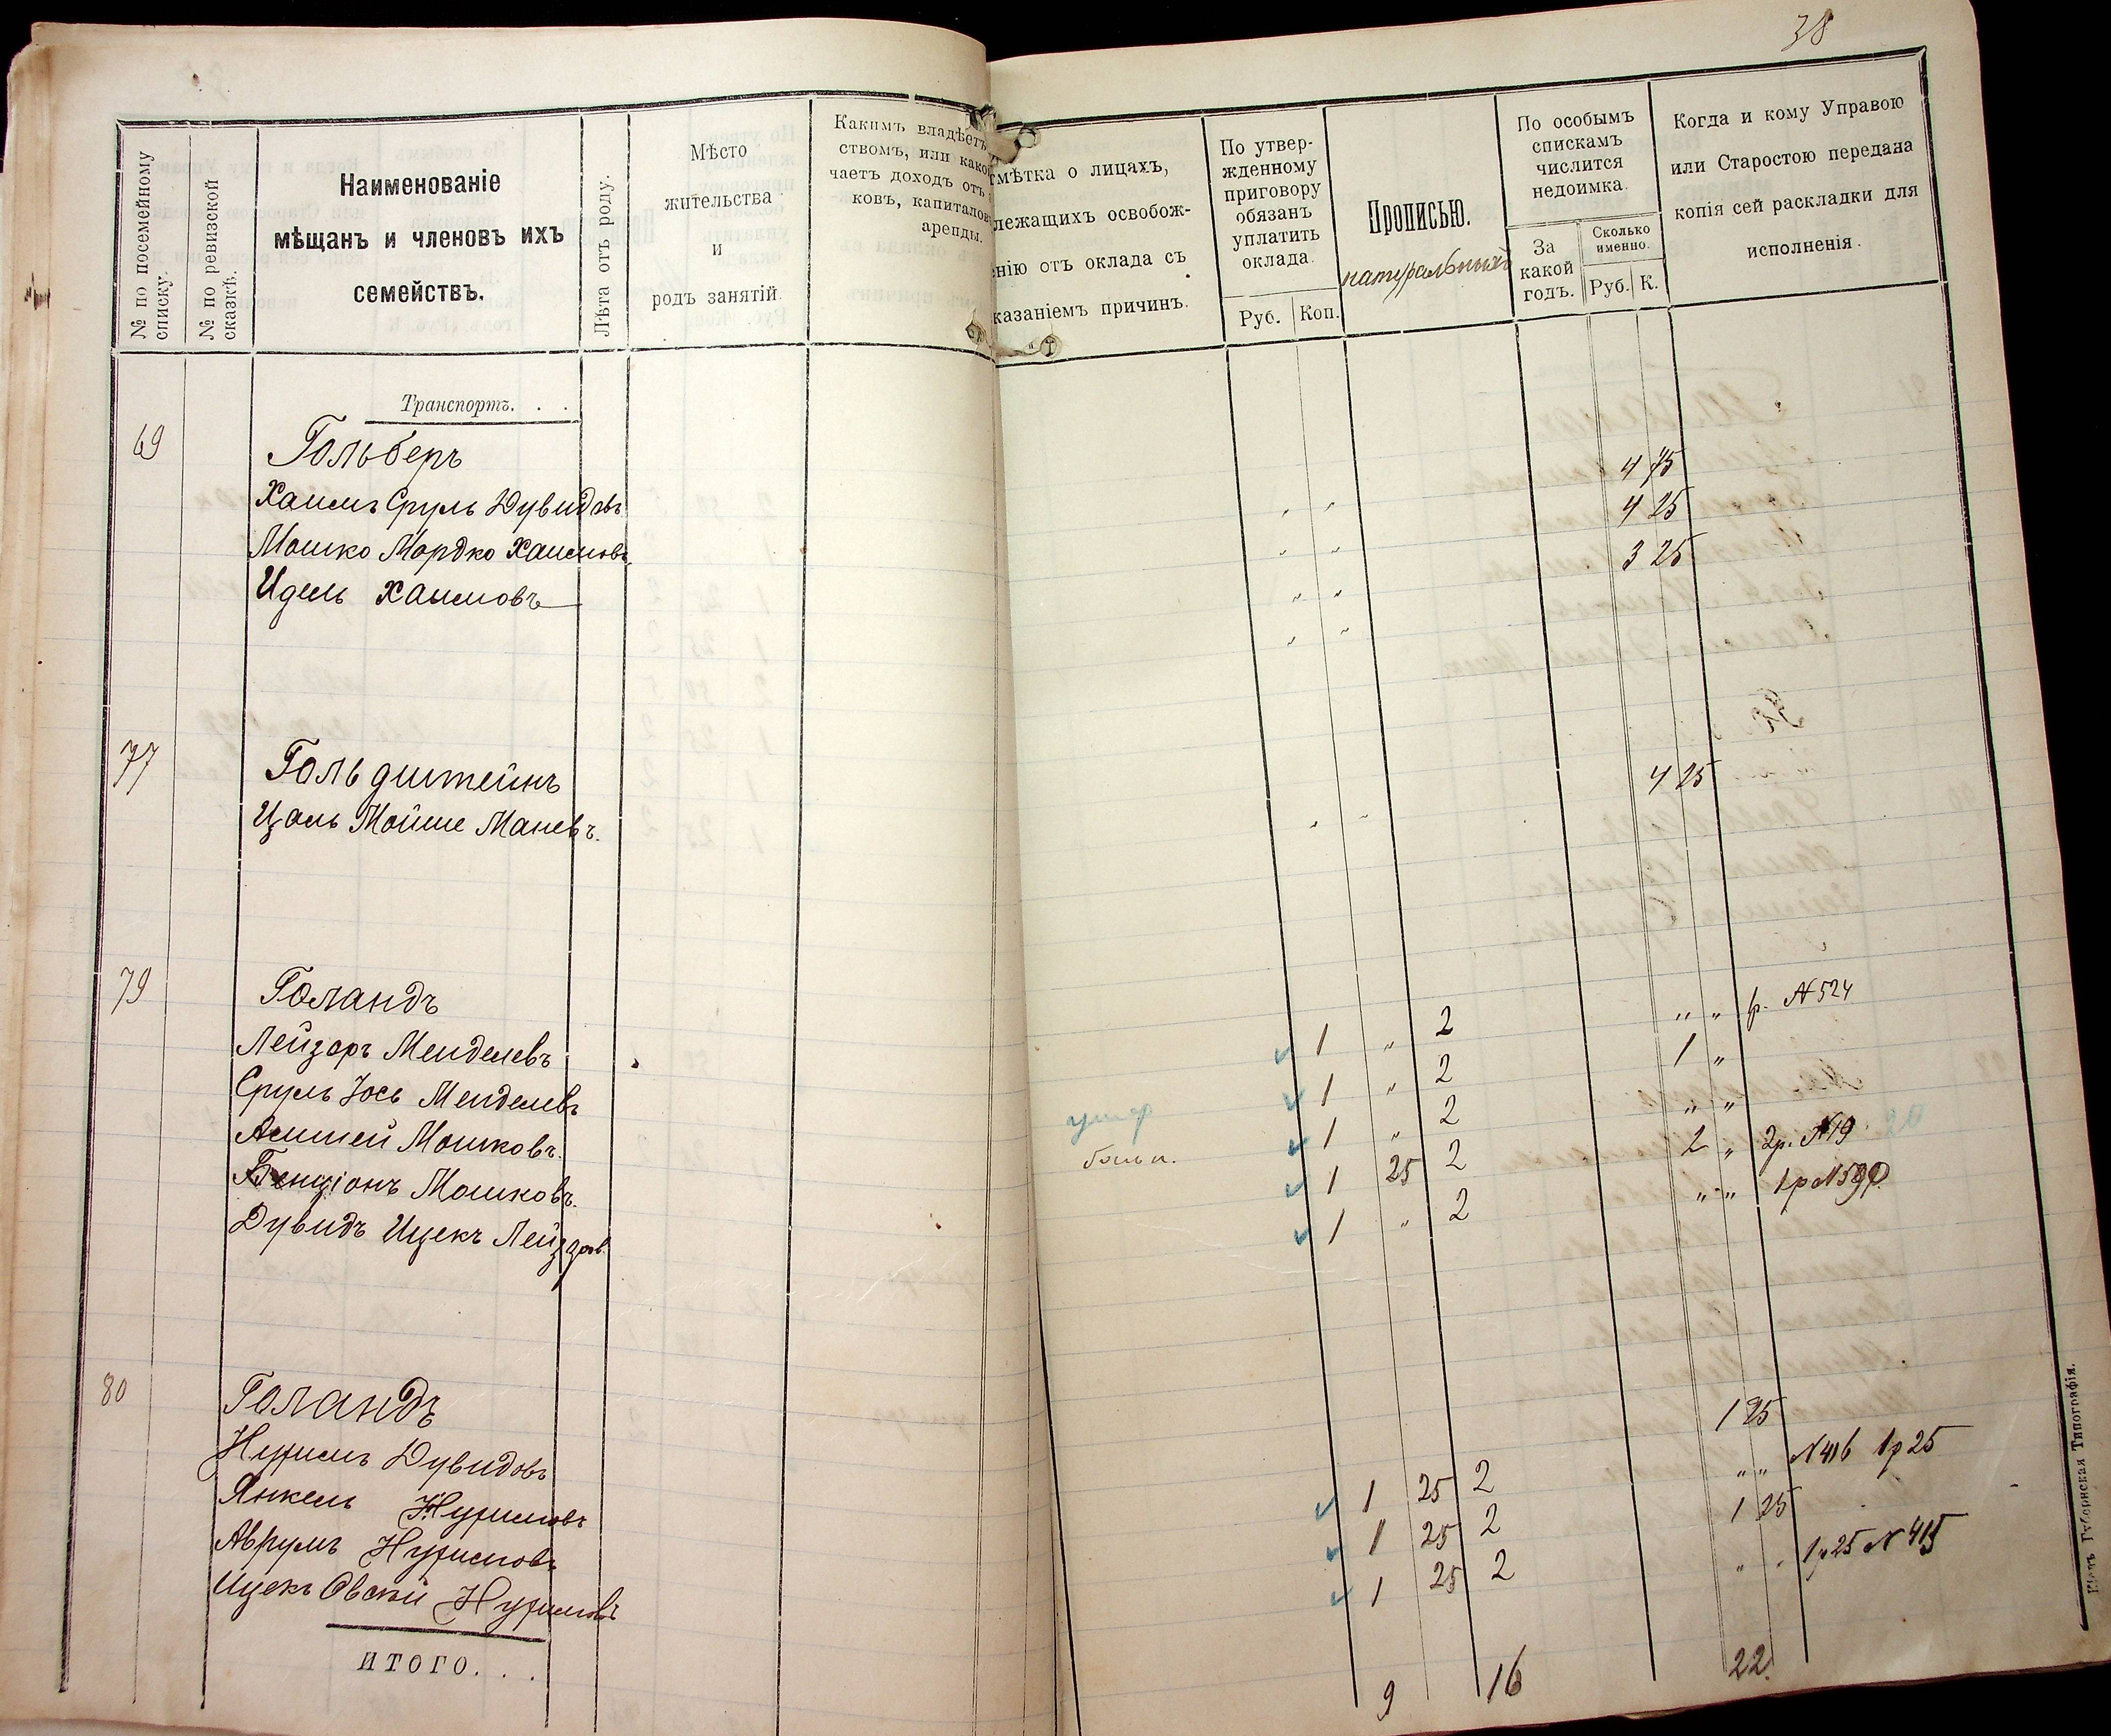 38
№ по посемейному списку.
№ по ревизской сказкѣ.
Наименованіе
мѣщанъ и членовъ ихъ
семействъ.
Лѣта отъ роду.
Мѣсто
жительства
и
родъ занятій.
Какимъ владѣетъ
ствомъ, или како
чаетъ доходъ отъ
ковъ, капиталов
аренды.
тмѣтка о лицахъ,
лежащихъ освобож-
нію отъ оклада съ
казаніемъ причинъ.
По утвер-
жденному
приговору
обязанъ
уплатить
оклада.
Руб. Коп.
Прописью.
натуральныхъ
По особымъ
спискамъ
числится
недоимка.
За
какой
годъ.
Сколько
именно.
Руб. К.
Когда и кому Управою
или Старостою передана
копія сей раскладки для
исполненія.
Транспортъ. . .
69 Гольберъ
Хаимъ Сруль Дувидовъ " " 4 75
Мошко Мордко Хаимовъ " " 4 25
Идель Хаимовъ " " 3 25
" "
77 Гольдштейнъ
Цаль Мойше Маневъ. " " 4 25
79 Голандъ
Лейзоръ Менделевъ 1 " 2 " " р. №524
Сруль Іось Менделевъ 1 " 2 1 "
Мошковъ. умер 1 " 2 " "
Бенціонъ Мошковъ. больн. 1 25 2 2 " 2р. №19 20
Дувидъ Ицекъ Лейзоров. 1 " 2 " " 1р №590
80 Голандъ
Нухимъ Дувидовъ 1 25
Янкель Нухимовъ 1 25 2 " " №416 1р 25
Аврумъ Нухимовъ 1 25 2 1 25
Ицекъ Овсей Нухимовъ 1 25 2 " " 1р25 №415
ИТОГО. . . 9 16 22.
Кіевъ Губернская Типографія.